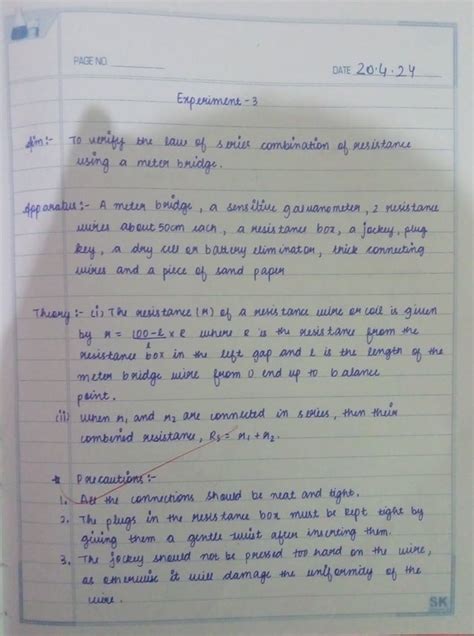 PAGE NO.
DATE 20.4.24
Experiment - 3
Aim:- To verify the law of series combination of resistance
using a meter bridge.
Apparatus:- A meter bridge, a sensitive galvanometer, 2 resistance
wires about 50cm each, a resistance box, a jockey, plug
key, a dry cell or battery eliminator, thick connecting
wires and a piece of sand paper
Theory:- (i) The resistance (r) of a resistance wire or coil is given
by r = 100-l/l x R where R is the resistance from the
resistance box in the left gap and l is the length of the
meter bridge wire from 0 end up to balance
point.
(ii) When r1 and r2 are connected in series, then their
combined resistance, Rs = r1 + r2.
* Precautions:-
1. All the connections should be neat and tight.
2. The plugs in the resistance box must be kept tight by
giving them a gentle twist after inserting them.
3. The jockey should not be pressed too hard on the wire,
as otherwise it will damage the uniformity of the
wire.
SK